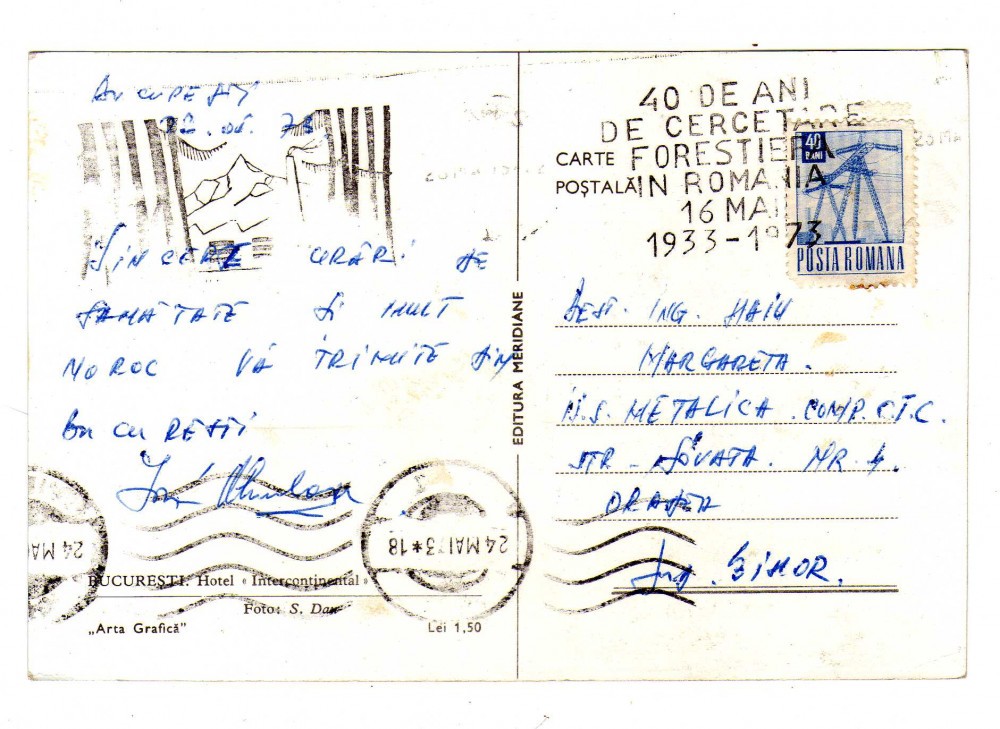 București
22.05.73
SINCERE URĂRI DE
SĂNĂTATE ȘI MULT
NOROC VĂ TRIMITE DIN
BUCUREȘTI
BUCUREȘTI. Hotel « Intercontinental »
Foto: S. Dan
„Arta Grafică”
Lei 1,50
24 MAI 73 * 18
24 MAI
EDITURA MERIDIANE
40 DE ANI
DE CERCETARE
FORESTIERA
IN ROMANIA
16 MAI
1933-1973
CARTE
POȘTALĂ
40
BANI
POSTA ROMANA
DEST. ING. HAIU
MARGARETA.
I.S. METALICA. COMP. C.T.C.
STR - SOVATA. NR 4.
ORADEA
Jud. BIHOR.